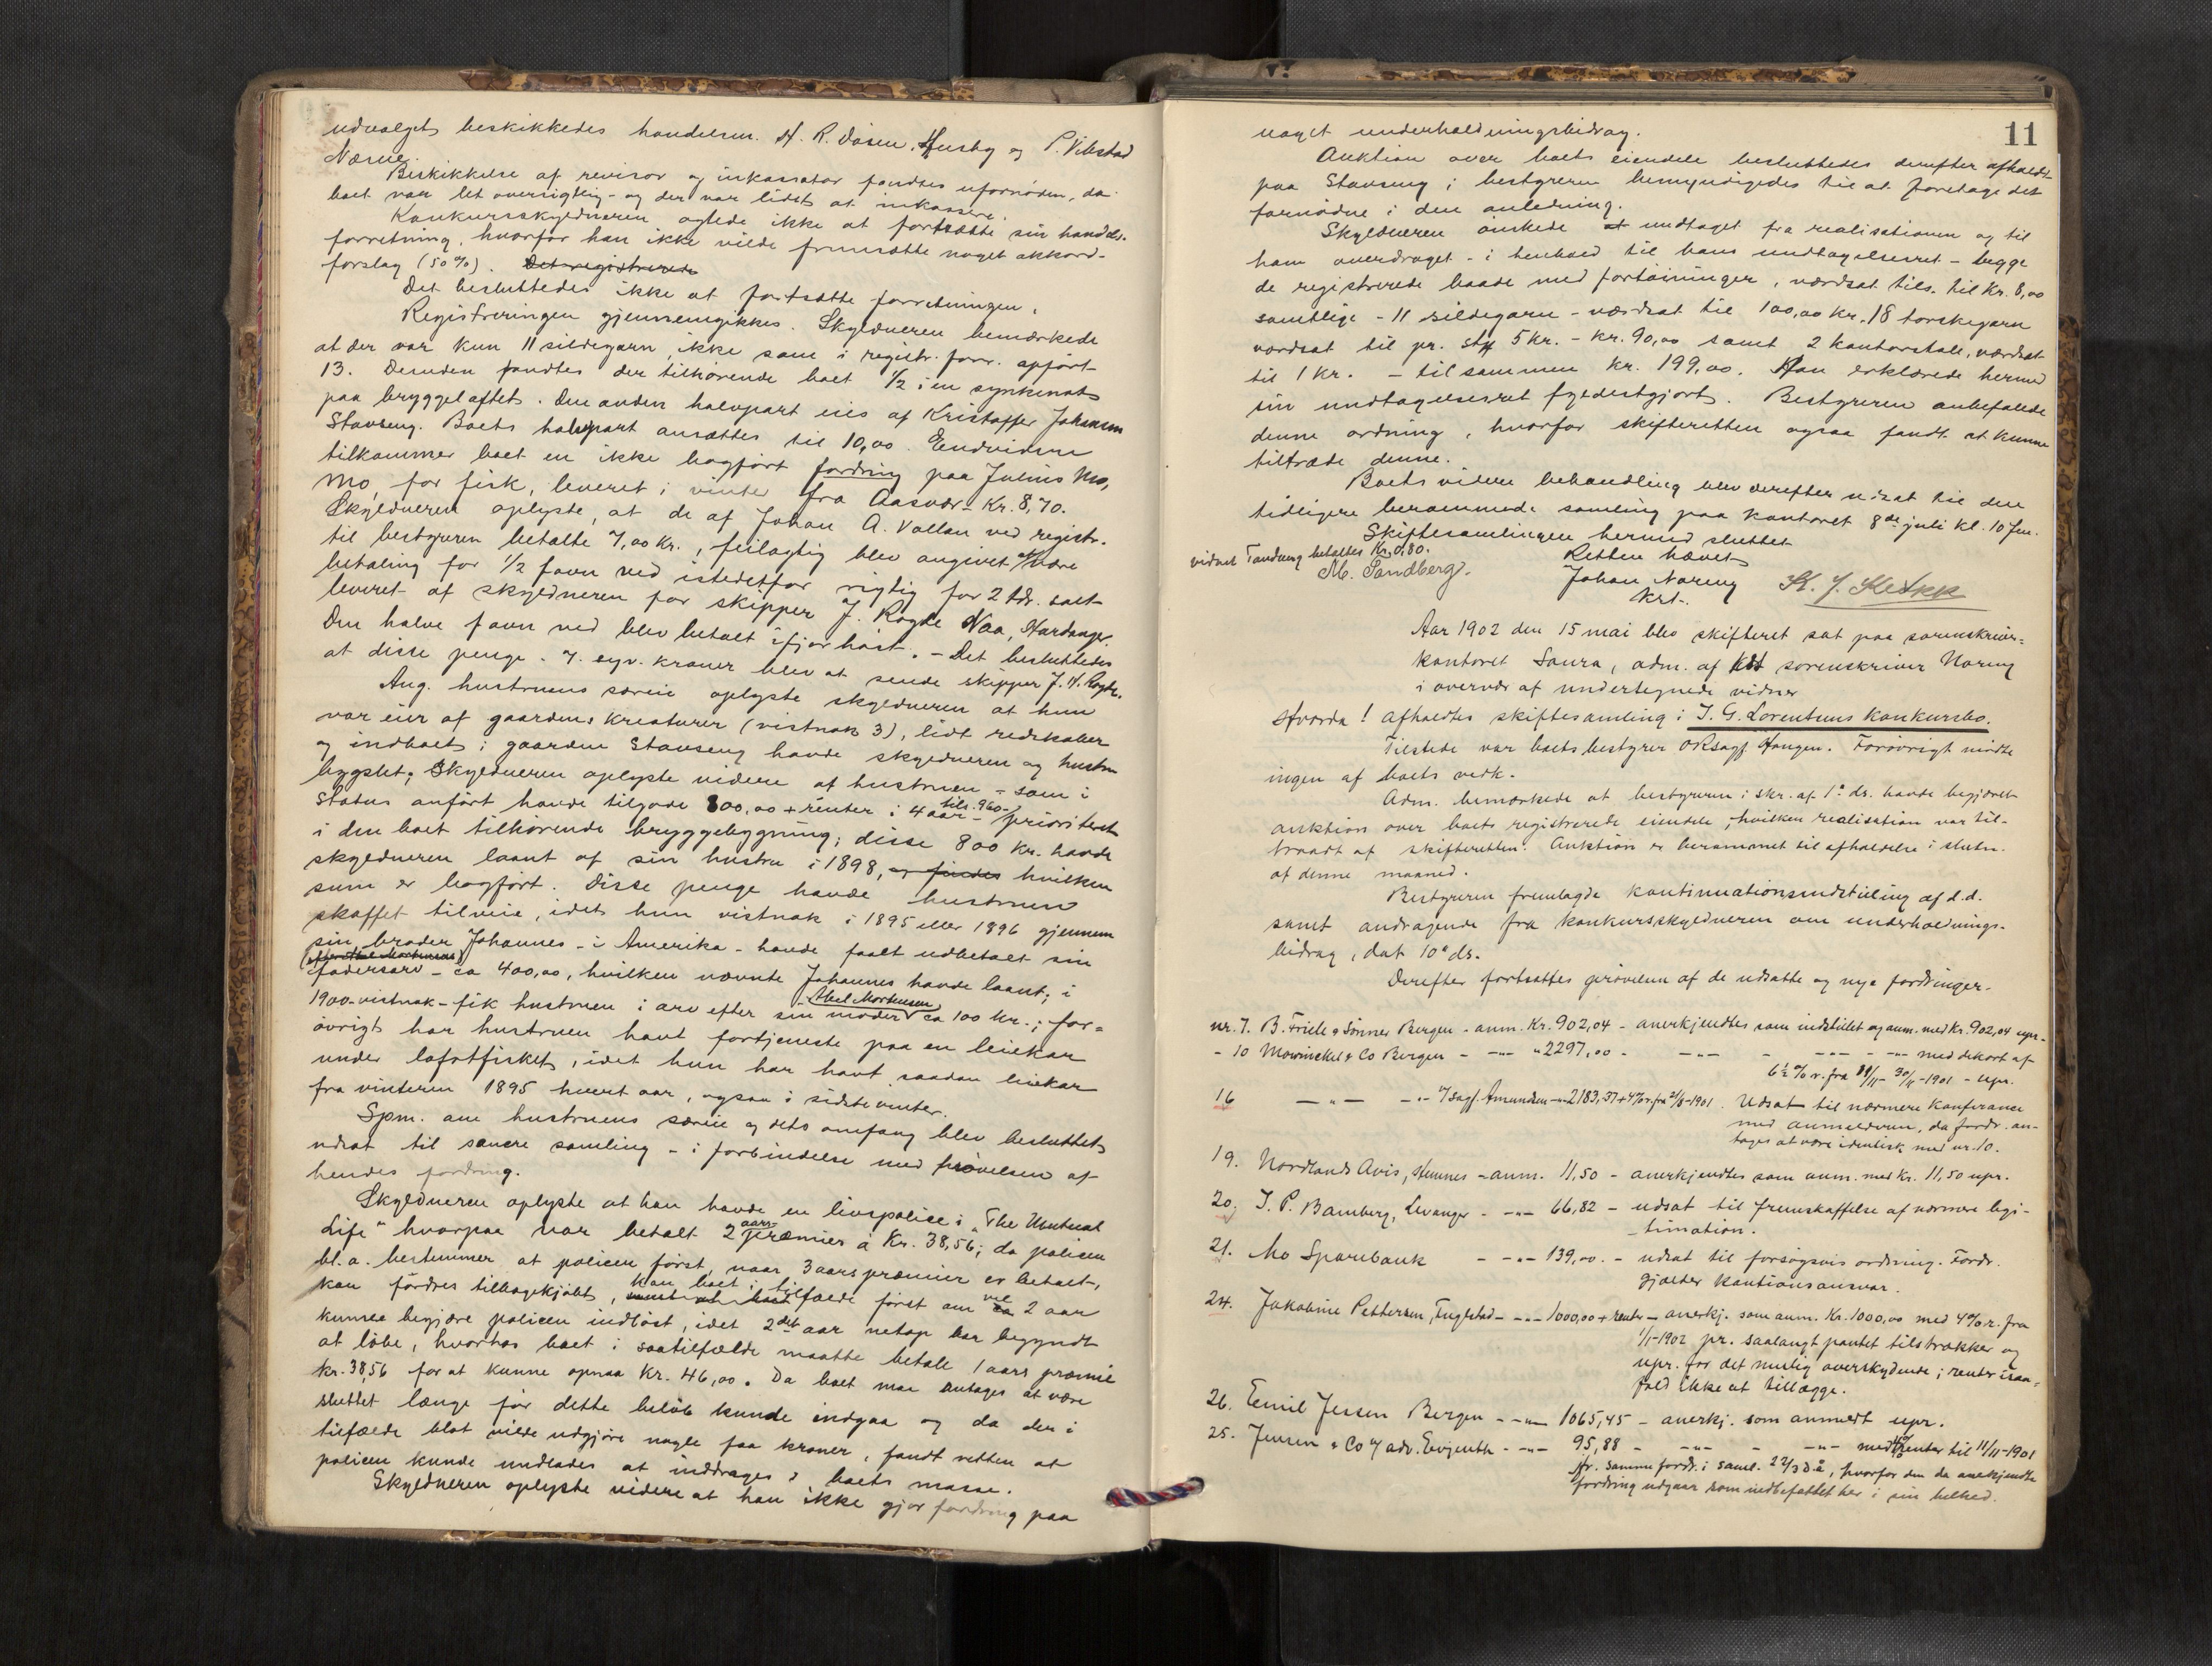 udvalget beskikkedes handelsm. H. R. Dösen, Husby og P. Vibstad
Næsne.
Beskikkelse af revisor og inkassator fandtes ufornöden, da
boet var let oversigtlig - og der var lidet at inkassere.
Konkursskyldneren agtede ikke at fortsætte sin handels-
forretning, hvorfor han ikke vilde fremsætte noget akkord-
forslag (50%). Det registrerede
Det besluttedes ikke at fortsætte forretningen.
Registreringen gjennemgikkes. Skyldneren bemærkede
at der var kun 11 sildegarn, ikke som i registr. forr. opfört
13. Desuden fandtes der tilhörende boet 1/2 i en synkenot
paa bryggeloftet. Den anden halvpart eies af Kristoffer Johansen
Stavseng. Boets halvpart ansættes til 10,00. Endvidere
tilkommer boet en ikke bogfört fordring paa Julius Mo,
Mo, for fisk, leveret i vinter fra Aasvær - Kr. 8,70.
Skyldneren oplyste, at de af Johan A. Vallan ved registr.
til bestyreren betalte 7,00 kr., feilagtig blev angivet at være
betaling for 1/2 favn ved istedetfor rigtig for 2 tdr. salt
leveret af skyldneren for skipper J. Rogde Naa, Hardanger.
Den halve favn ved blev betalt ifjor höst. - Det besluttedes
at disse penge - 7. syv. kroner blev at sende skipper J. H. Rogde.
Ang. hustruens særeie oplyste skyldneren at hun
var eier af gaardens kreaturer (vistnok 3), lidt redskaber
og indboet; gaarden Stavseng havde skyldneren og hustru
bygslet; Skyldneren oplyste videre at hustruen - som i
status anfört havde tilgode 800,00 + renter i 4 aar tils. 960 - prioriteret
i den boet tilhörende bryggebygning; disse 800 kr. havde
skyldneren laant af sin hustru i 1898, og findes hvilken
sum er bogfört. Disse penge havde hustruen
skaffet tilveie, idet hun vistnok i 1895 eller 1896 gjennem
sin broder Johannes - i Amerika - havde faaet udbetalt sin
fadersarv - ca 400,00, hvilken nævnte Johannes havde laant; i
1900 - vistnok - fik hustruen i arv efter sin moder Abel Mortensen ca 100 kr.; for-
övrigt har hustruen havt fortjeneste paa en leiekar
under lofotfisket, idet hun har havt saadan leiekar
fra vinteren 1895 hvert aar, ogsaa i sidste vinter.
Spm. om hustruens særeie og dets omfang blev besluttet
udsat til senere samling - i forbindelse med prövelsen af
hendes fordring.
Skyldneren oplyste at han havde en livspolice i "The Mutual
Life" hvorpaa var betalt 2 aars præmier à Kr. 38,56; da policen
bl. a. bestemmer at policen först, naar 3 aars præmier er betalt,
kan fordres tilbagekjöbt, kan boet i tilfælde först om vel 2 aar
kunne begjære policen indlöst, idet 2det aar netop har begyndt
at löbe, hvorhos boet i saatilfælde maatte betale 1 aars præmie
kr. 38,56 for at kunne opnaa Kr. 46,00. Da boet maa antages at være
sluttet længe för dette belöb kunde indgaa og da den i
tilfælde blot vilde udgjöre nogle faa kroner, fandt retten at
policen kunde undlades at inddrages i boets masse.
Skyldneren oplyste videre at han ikke gjör fordring paa
11
noget underholdningsbidrag.
Auktion over boets eiendele besluttedes derefter afholdt
paa Stavseng; bestyreren bemyndigedes til at foretage det
fornödne i den anledning.
Skyldneren önskede at undtaget fra realisationen og til
ham overdraget - i henhold til hans undtagelsesret - begge
de registrerede baade med fortöininger, værdsat tils. til Kr. 8,00
samtlige - 11 sildegarn - værdsat til 100,00 kr., 18 torskegarn
værdsat til pr. stk 5 kr. - kr. 90,00 samt 2 kontorstole, værdsat
til 1 kr. - tilsammen kr. 199,00. Han erklærede hermed
sin undtagelsesret fyldestgjort. Bestyreren anbefalede
denne ordning, hvorfor skifteretten ogsaa fandt at kunne
tiltræde denne.
Boets videre behandling blev derefter udsat til den
tidligere berammede samling paa kontoret 8de juli kl. 10 fm.
Skiftesamlingen hermed sluttet
vidnet Tandberg betaltes Kr. 0,80. Retten hævet
M. Sandberg. Johan Noreng
Kst.
Aar 1902 den 15 mai blev skifteret sat paa sorenskriver-
kontoret Saura, adm. af kst sorenskriver Noreng
i overvær af undertegnede vidner
Hvorda! afholdtes skiftesamling i J. G. Lorentsens konkursbo.
Tilstede var boets bestyrer oRsagf. Haugen. Forövrigt mödte
ingen af boets vedk.
Adm. bemærkede at bestyreren i skr. af 1ste ds. havde begjæret
auktion over boets registrerede eiendele, hvilken realisation var til-
traadt af skifteretten. Auktion er berammet til afholdelse i slutn.
af denne maaned.
Bestyreren fremlagde kontinuationsindstilling af d.d.
samt andragende fra konkursskyldneren om underholdnings-
bidrag, dat 10de ds.
Derefter fortsattes prövelsen af de udsatte og nye fordringer.
nr. 7. B. Friele & Sönner Bergen - anm. Kr. 902,04 - anerkjendtes som indstillet og anm. med kr. 902,04 upr.
- 10 Mowinckel & Co Bergen - -"- " 2297,00 - -"- - -"- - -"- med dekort af
6 1/2 % r. fra - 30/11 - 1901 - upr.
16 -"- - -"- v/ sagf. Amundsen -"- 2183,37 + 4% r. fra 21/8 - 1901. Udsat til nærmere konferance
med anmelderen, da fordr. an-
tages at være identisk med nr. 10.
19. Nordlands Avis, Hemnes - anm. 11,50 - anerkjendtes som anm. med Kr. 11,50 upr.
20. J. P. Bamberg, Levanger - -"- 66,82 - udsat til fremskaffelse af nærmere legi-
timation.
21. Mo Sparebank - -"- 139,00. - udsat til forsögsvis ordning. Fordr.
gjælder kautionsansvar.
24. Jakobine Pettersen, Fuglstad - -"- 1000,00 + renter - anerkj. som anm. Kr. 1000,00 med 4% r. fra
1/1 - 1902 pr. saalangt pantet tilstrækker og
upr. for det mulig overskydende; renter isaa-
fald ikke at tillægge.
26. Emil Jessen Bergen - -"- 1065,45 - anerkj. som anmeldt upr.
25. Jensen & Co v/ adv. Evjenth - -"- 95,88 - -"- - -"- med renter til 11/11 - 1901
jfr. samme fordr. i saml. 22/3 d.å., hvorfor den da anerkjendte
fordring udgaar som indbefattet her i sin helhed.